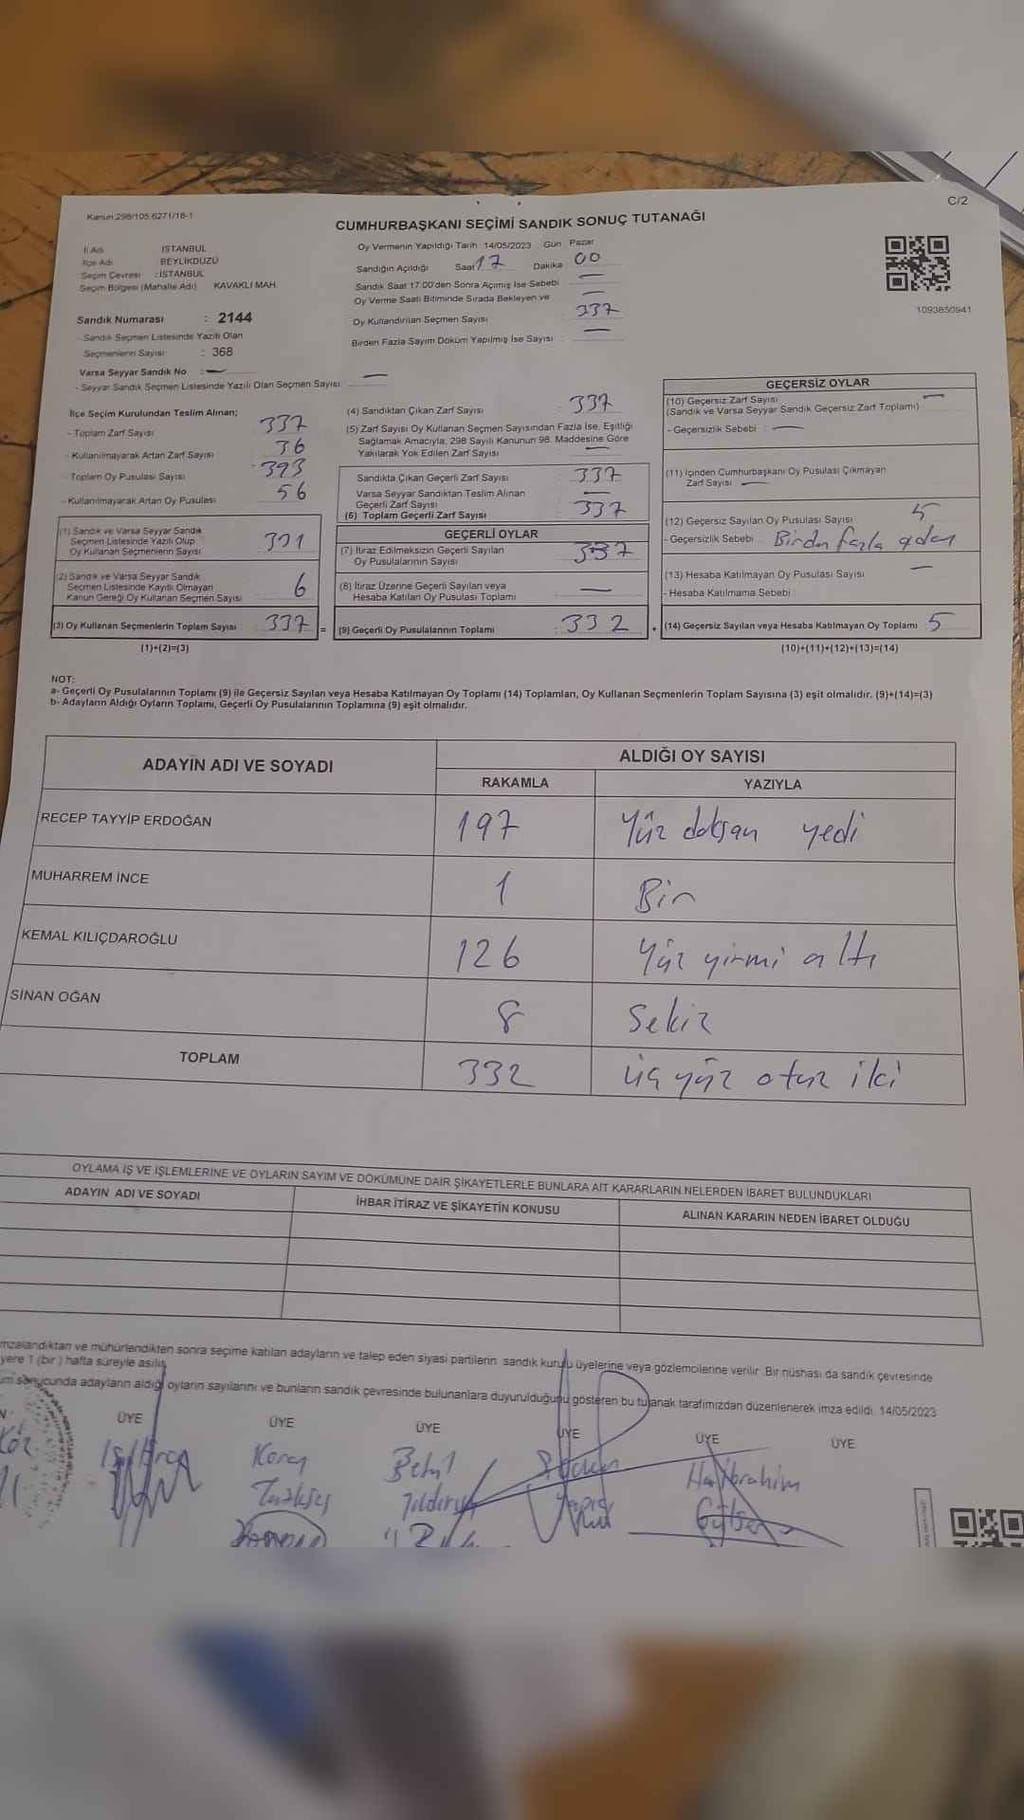 Kanun:298/105.6271/18-1
C/2
CUMHURBAŞKANI SEÇİMİ SANDIK SONUÇ TUTANAĞI
İl Adı : İSTANBUL
İlçe Adı : BEYLİKDÜZÜ
Seçim Çevresi : İSTANBUL
Seçim Bölgesi (Mahalle Adı) : KAVAKLI MAH.
Sandık Numarası : 2144
- Sandık Seçmen Listesinde Yazılı Olan
Seçmenlerin Sayısı : 368
Varsa Seyyar Sandık No : —
- Seyyar Sandık Seçmen Listesinde Yazılı Olan Seçmen Sayısı : —
Oy Vermenin Yapıldığı Tarih 14/05/2023 Gün Pazar
Sandığın Açıldığı Saat 17 Dakika 00
Sandık Saat 17:00'den Sonra Açımış İse Sebebi —
Oy Verme Saati Bitiminde Sırada Bekleyen ve —
Oy Kullandırılan Seçmen Sayısı : 337
Birden Fazla Sayım Döküm Yapılmış İse Sayısı : —
1093850941
İlçe Seçim Kurulundan Teslim Alınan;
- Toplam Zarf Sayısı 337
- Kullanılmayarak Artan Zarf Sayısı 36
- Toplam Oy Pusulası Sayısı 393
- Kullanılmayarak Artan Oy Pusulası 56
(1) Sandık ve Varsa Seyyar Sandık
Seçmen Listesinde Yazılı Olup
Oy Kullanan Seçmenlerin Sayısı 331
(2) Sandık ve Varsa Seyyar Sandık
Seçmen Listesinde Kayıtlı Olmayan
Kanun Gereği Oy Kullanan Seçmen Sayısı 6
(3) Oy Kullanan Seçmenlerin Toplam Sayısı : 337 =
(1)+(2)=(3)
(4) Sandıktan Çıkan Zarf Sayısı 337
(5) Zarf Sayısı Oy Kullanan Seçmen Sayısından Fazla İse, Eşitliği
Sağlamak Amacıyla, 298 Sayılı Kanunun 98. Maddesine Göre
Yakılarak Yok Edilen Zarf Sayısı —
Sandıkta Çıkan Geçerli Zarf Sayısı 337
Varsa Seyyar Sandıktan Teslim Alınan
Geçerli Zarf Sayısı —
(6) Toplam Geçerli Zarf Sayısı 337
GEÇERLİ OYLAR
(7) İtiraz Edilmeksizin Geçerli Sayılan
Oy Pusulalarının Sayısı 337
(8) İtiraz Üzerine Geçerli Sayılan veya
Hesaba Katılan Oy Pusulası Toplamı —
(9) Geçerli Oy Pusulalarının Toplamı : 332 +
GEÇERSİZ OYLAR
(10) Geçersiz Zarf Sayısı —
(Sandık ve Varsa Seyyar Sandık Geçersiz Zarf Toplamı)
- Geçersizlik Sebebi : —
(11) İçinden Cumhurbaşkanı Oy Pusulası Çıkmayan
Zarf Sayısı —
(12) Geçersiz Sayılan Oy Pusulası Sayısı 5
- Geçersizlik Sebebi : Birden fazla
(13) Hesaba Katılmayan Oy Pusulası Sayısı —
- Hesaba Katılmama Sebebi :
(14) Geçersiz Sayılan veya Hesaba Katılmayan Oy Toplamı 5
(10)+(11)+(12)+(13)=(14)
NOT:
a- Geçerli Oy Pusulalarının Toplamı (9) ile Geçersiz Sayılan veya Hesaba Katılmayan Oy Toplamı (14) Toplamları, Oy Kullanan Seçmenlerin Toplam Sayısına (3) eşit olmalıdır. (9)+(14)=(3)
b- Adayların Aldığı Oyların Toplamı, Geçerli Oy Pusulalarının Toplamına (9) eşit olmalıdır.
ADAYIN ADI VE SOYADI
ALDIĞI OY SAYISI
RAKAMLA YAZIYLA
RECEP TAYYİP ERDOĞAN 197 Yüz doksan yedi
MUHARREM İNCE 1 Bir
KEMAL KILIÇDAROĞLU 126 Yüz yirmi altı
SİNAN OĞAN 8 Sekiz
TOPLAM 332 üç yüz otuz iki
OYLAMA İŞ VE İŞLEMLERİNE VE OYLARIN SAYIM VE DÖKÜMÜNE DAİR ŞİKAYETLERLE BUNLARA AİT KARARLARIN NELERDEN İBARET BULUNDUKLARI
ADAYIN ADI VE SOYADI İHBAR İTİRAZ VE ŞİKAYETİN KONUSU ALINAN KARARIN NEDEN İBARET OLDUĞU
mzalandıktan ve mühürlendikten sonra seçime katılan adayların ve talep eden siyasi partilerin sandık kurulu üyelerine veya gözlemcilerine verilir. Bir nüshası da sandık çevresinde
yere 1 (bir) hafta süreyle asılır.
sonucunda adayların aldığı oyların sayılarını ve bunların sandık çevresinde bulunanlara duyurulduğunu gösteren bu tutanak tarafımızdan düzenlenerek imza edildi. 14/05/2023
ÜYE ÜYE ÜYE ÜYE ÜYE ÜYE
Koray Betül
Yıldırım